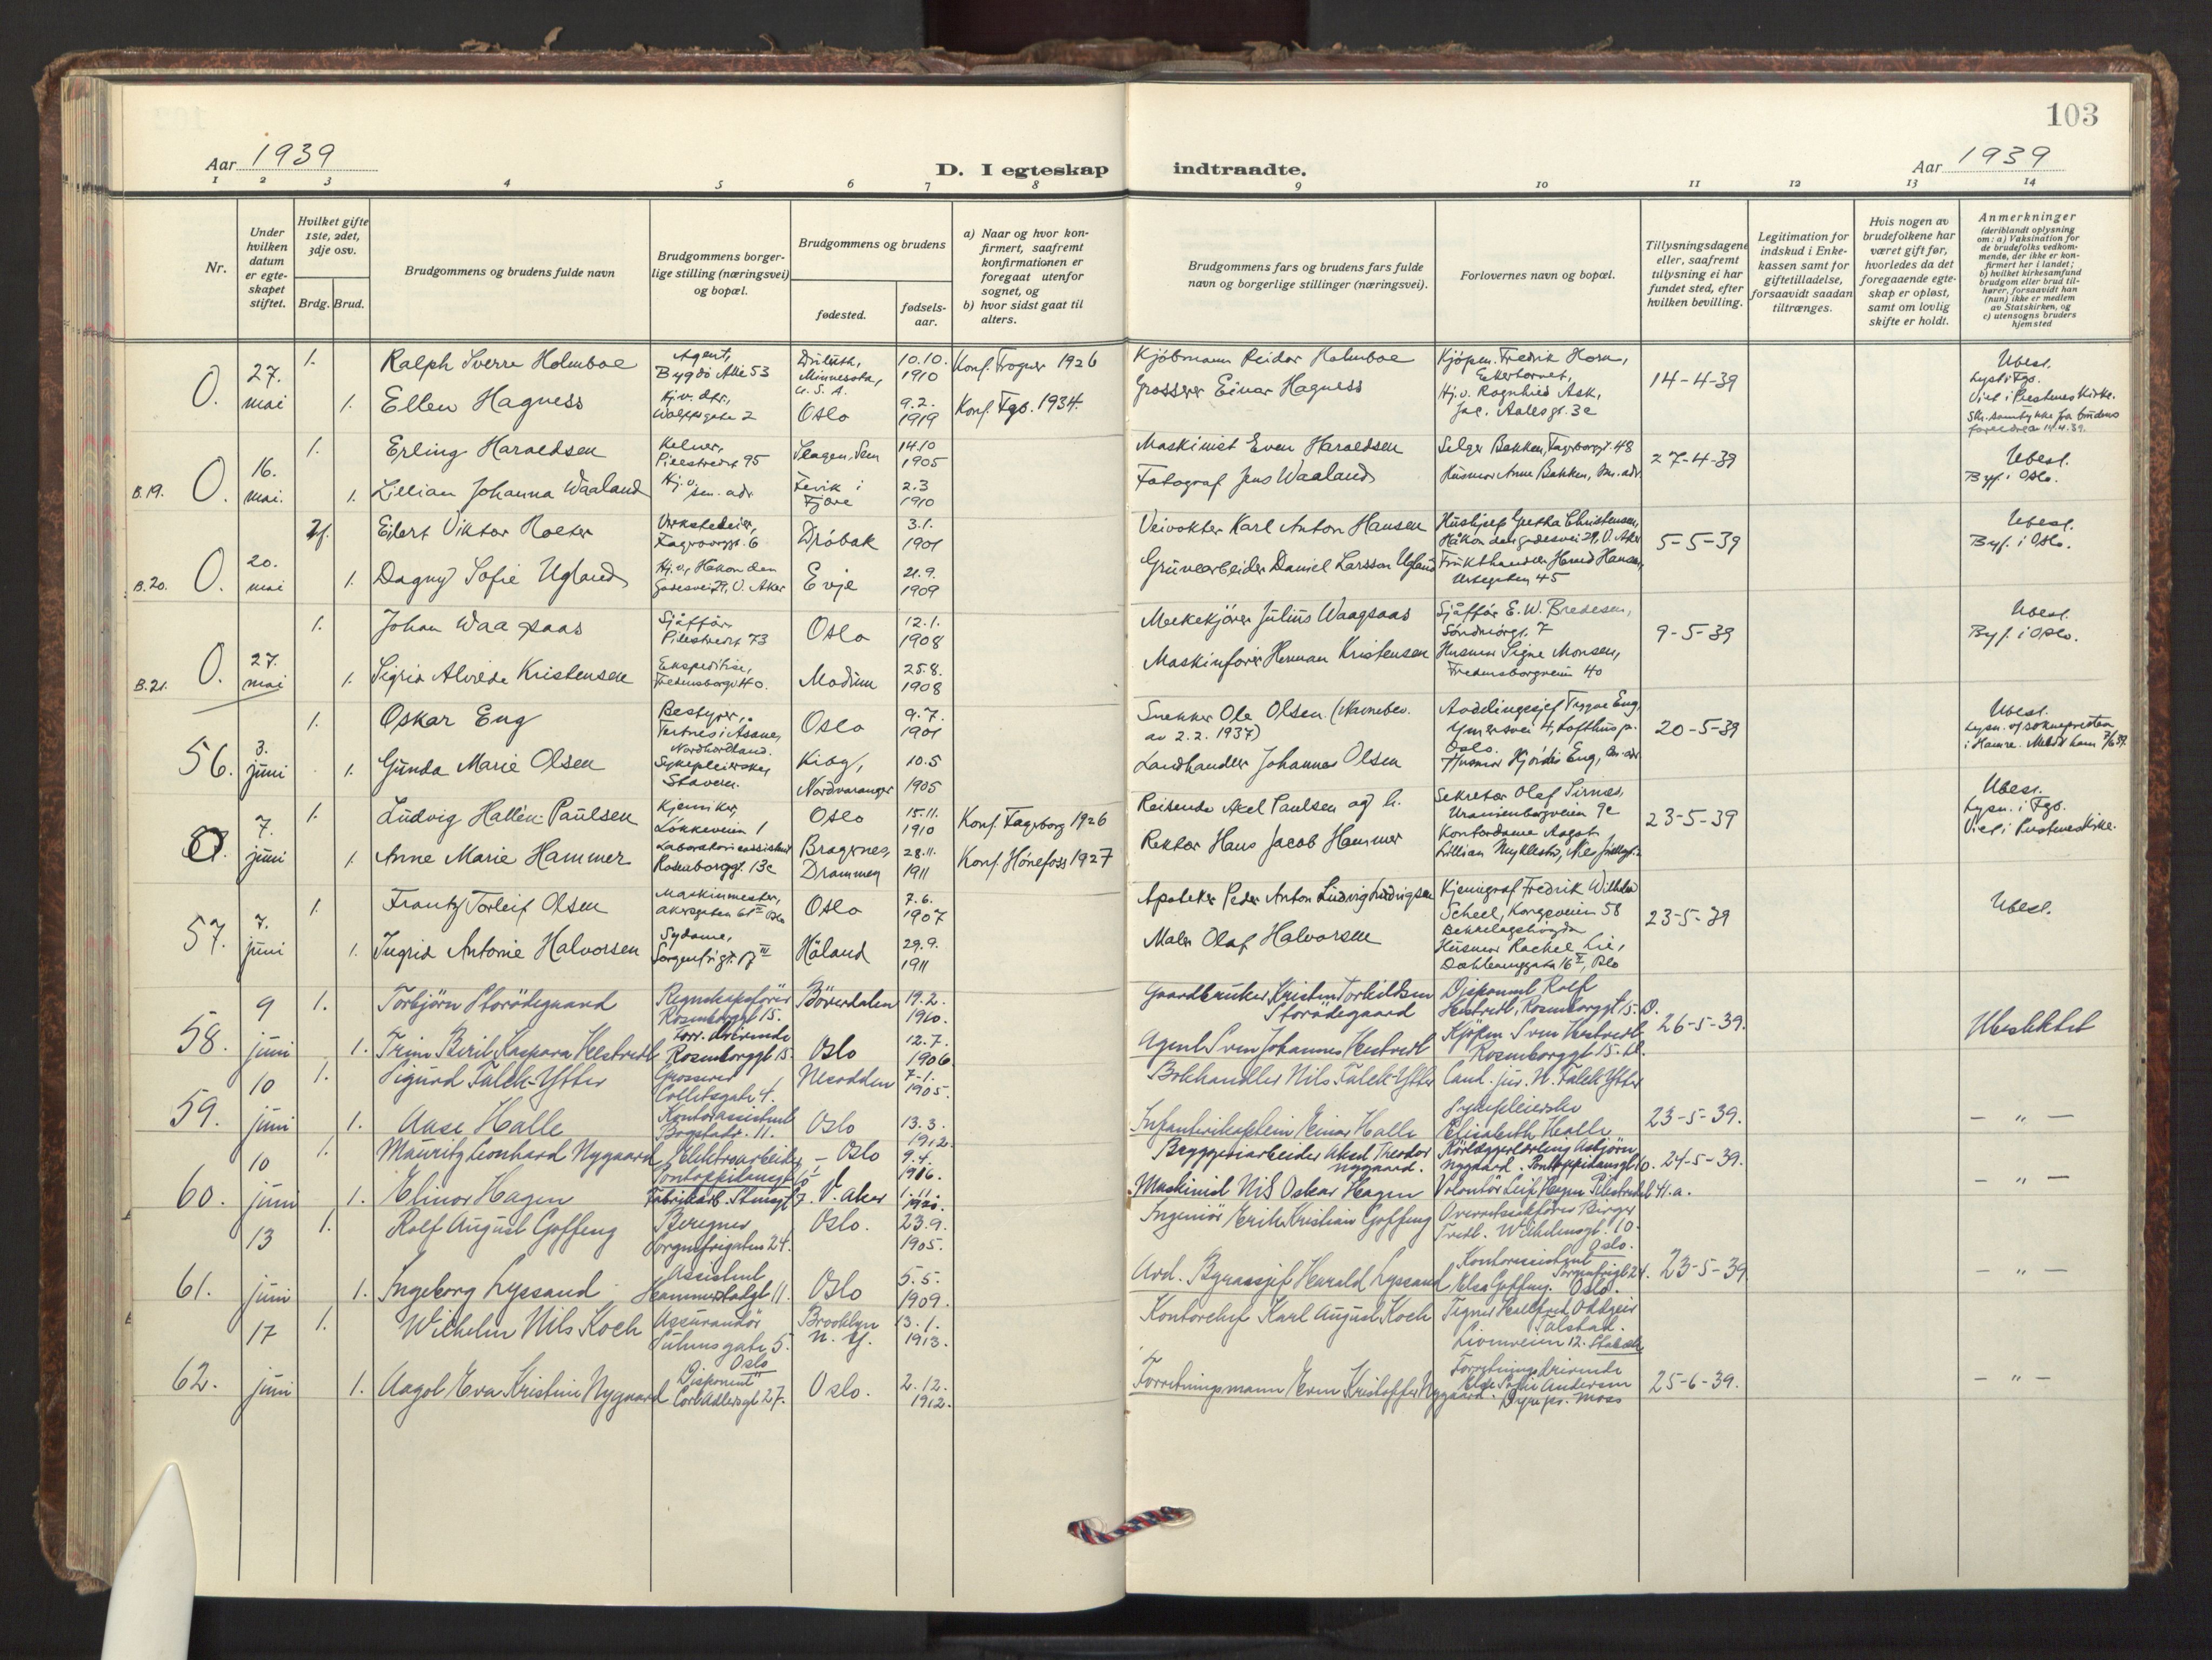 103
Aar 1939
D. I egteskap indtraadte.
Aar 1939
1 2 3 4 5 6 7 8 9 10 11 12 13 14
Nr.
Under hvilken datum er egteskapet stiftet.
Hvilket gifte 1ste, 2det, 3dje osv.
Brdg. Brud.
Brudgommens og brudens fulde navn
Brudgommens borgerlige stilling (næringsvei) og bopæl.
Brudgommens og brudens
fødested.
fødselsaar.
a) Naar og hvor konfirmert, saafremt konfirmationen er foregaat utenfor sognet, og
b) hvor sidst gaat til alters.
Brudgommens fars og brudens fars fulde navn og borgerlige stillinger (næringsvei).
Forlovernes navn og bopæl.
Tillysningsdagene eller, saafremt tillysning ei har fundet sted, efter hvilken bevilling.
Legitimation for indskud i Enkekassen samt for giftetilladelse, forsaavidt saadan tiltrænges.
Hvis nogen av brudefolkene har været gift før, hvorledes da det foregaaende egteskap er opløst, samt om lovlig skifte er holdt.
Anmerkninger
(deriblandt oplysning om: a) Vaksination for de brudefolks vedkommende, der ikke er konfirmert her i landet; b) hvilket kirkesamfund brudgom eller brud tilhører, forsaavidt han (hun) ikke er medlem av Statskirken, og c) utensogns bruders hjemsted
O. 27. mai
1. Ralph Sverre Holmboe Agent, Bygdö Allé 53 Duluth, Minnesota, U.S.A. 10.10. 1910 Konf. Frogner 1926 Kjöbmann Reidar Holmboe Kjöpm. Fredrik Horn, 14-4-39 Ubesl. Lyst i Fgb. Viet i Prestenes Kirke.
1. Ellen Hagness Hj.v. dtr., gate 2 Oslo 9.2. 1919 Konf. Fgb. 1934. Grosserer Einar Hagness Hj.v. Ragnhild Ask, Jac. Aalls gt. 3c
B.19. O. 16. mai.
1. Erling Haraldsen Kelner, Pilestredet 95 Slagen, Sem 14.10 1905 Maskinist Even Haraldsen Selger Bakken, Fagerborggt. 48 27-4-39 Ubesl. Byf. i Oslo.
1. Lillian Johanna Waaland Hj.v. sm. adr. Fevik i Fjære 2.3 1910 Fotograf Jens Waaland Husmor Anne Bakken, sm. adr.
B.20. O. 20. mai
2/. Eilert Viktor Holter Verkstedeier, Fagerborggt. 6 Dröbak 3.1. 1901 Veivokter Karl Anton Hansen Hushjelp Gretha Christensen, Håkon den godesvei 29, V. Aker 5-5-39 Ubesl. Byf. i Oslo.
1. Dagny Sofie Ugland Hj.v., Håkon den godesvei 29, V. Aker Evje 21.9. 1909 Gruvearbeider Daniel Larsson Ugland Frukthandler Harald Hansen, 45
B.21. O. 27. mai
1. Johan Waagsaas Sjåffør Pilestredet 73 Oslo 12.1. 1908 Melkekjører Julius Waagsaas Sjåffør E.W. Bredesen, Söndmörgt. 7 9-5-39 Ubesl. Byf. i Oslo.
1. Sigrid Alvilde Kristensen Ekspeditrise, Fredensborgv 40. Modum 25.8. 1908 Maskinfører Herman Kristensen Husmor Signe Monsen, Fredensborgveien 40
56. 3. juni
1. Oskar Eng Bestyrer, Tertnes i Åsane, Nordhordland. Oslo 9.7. 1901 Snekker Ole Olsen. (Navnebev. av 2.2. 1937) Avdelingssjef Trygve Eng, Ymersvei 4, Lofthus p. Oslo. 20-5-39 Ubesl. Lysn. af sokneprsten i Hamre.
1. Gunda Marie Olsen Sykepleierske, Stavern Kiby, Nordvaranger 10.5 1905 Landhandler Johannes Olsen Husmor Hjördis Eng, sm. adr
O. 7. juni
1. Ludvig Hallén-Paulsen Kjemiker, Lökkeveien 1 Oslo 15.11. 1910 Konf. Fagerborg 1926 Reisende Axel Paulsen og h. Sekretær Olaf Sirnes, Uranienborgveien 9c 23-5-39 Ubesl. Lysn. i Fgb. Viet i Prestenes Kirke.
1. Anne Marie Hammer Laboratorieassistent Rosenborggt. 13c Bragernes, Drammen 28.11. 1911 Konf. Hönefoss 1927 Rektor Hans Jacob Hammer Kontordame Aagot Lillian Myklestu,
57. 7. juni
1. Frantz Torleif Olsen Maskinmester, Akersgaten 61 III Oslo Oslo 7.6. 1907 Apoteker Peder Anton Ludvig Ludvigsen Kjemigraf Fredrik Wilhelm Scheel, Kongsveien 58 Bekkelagshögda 23-5-39 Ubesl.
1. Ingrid Antonie Halvorsen Sydame, Sorgenfrigt. 17 III Höland 29.9. 1911 Maler Olaf Halvorsen Husmor Rachel Lie, Dæhlenenggata 16 II, Oslo
58. 9 juni
1. Torbjörn Storödegaard Regnskapsförer Rosenborggt 15. Böverdalen 19.2. 1910. Gaardbruker Kristen Torkildsen Storödegaard Disponent Rolf Hestvedt, Rosenborggt 15. O. 26-5-39. Ubeslektet
1. Trine Beril Kaspara Hestvedt Forr. drivende Rosenborggt 15. Oslo 12.7. 1906 Agent Sven Johannes Hestvedt Kjöpm. Sven Hestvedt Rosenborggt 15.
59. 10 juni
1. Sigurd Falck-Ytter Grosserer Colletsgate 4. Notodden 7-1. 1905. Bokhandler Nils Falck-Ytter Cand. jur. N. Falck Ytter 23-5-39. — " —
1. Aase Halle Kontorassistent Bogstadv. 11. Oslo 13.3. 1912. Infanterikaptein Einar Halle Sykepleierske Elisabeth Halle
60. 10 juni
1. Mauritz Leonhard Nygaard Elektroarbeider Pontoppidansgt 10 Oslo 9.4. 1916. Bryggeriarbeider Aksel Theodor Nygaard. Rörleggerlærling Asbjörn Nygaard. Pontoppidansgt 10. 24-5-39. — " —
1. Elinor Hagen Fabrikarb. Stensgt 7. V. Aker 1.11. Maskinist Nils Oskar Hagen Volontör Leif Hagen Pilestredet 41.a.
61. 13 juni
1. Rolf August Goffeng Beregner Sorgenfrigaten 24. Oslo. 23.9. 1905. Ingeniör Erik Kristian Goffeng Overretssakförer Birger Tvedt. Wilhelmsgt. 10. Oslo. 23-5-39 — " —
1. Ingeborg Lyssand Assistent Hammerstadgt 11. Oslo 5.5. 1909. Avd. Byraasjef Harald Lyssand Kontorassistent Elsa Goffeng. Sorgenfrigt 24. Oslo.
62. 17 juni
1. Wilhelm Nils Koch Assurandör Suhmsgate 5. Oslo Brooklyn N.Y. 13.1. 1913. Kontorchef Karl August Koch Tegner Hallfred Oddgeir Tolstad. 12. Stabekk 25-6-39. — " —
1. Aagot Eva Kristine Nygaard Disponent Cort Adlersgt 27. Oslo. 2.12. 1912. Forretningsmann Even Kristoffer Nygaard. Forretningsdrivende Else Sofie Andersen Moss